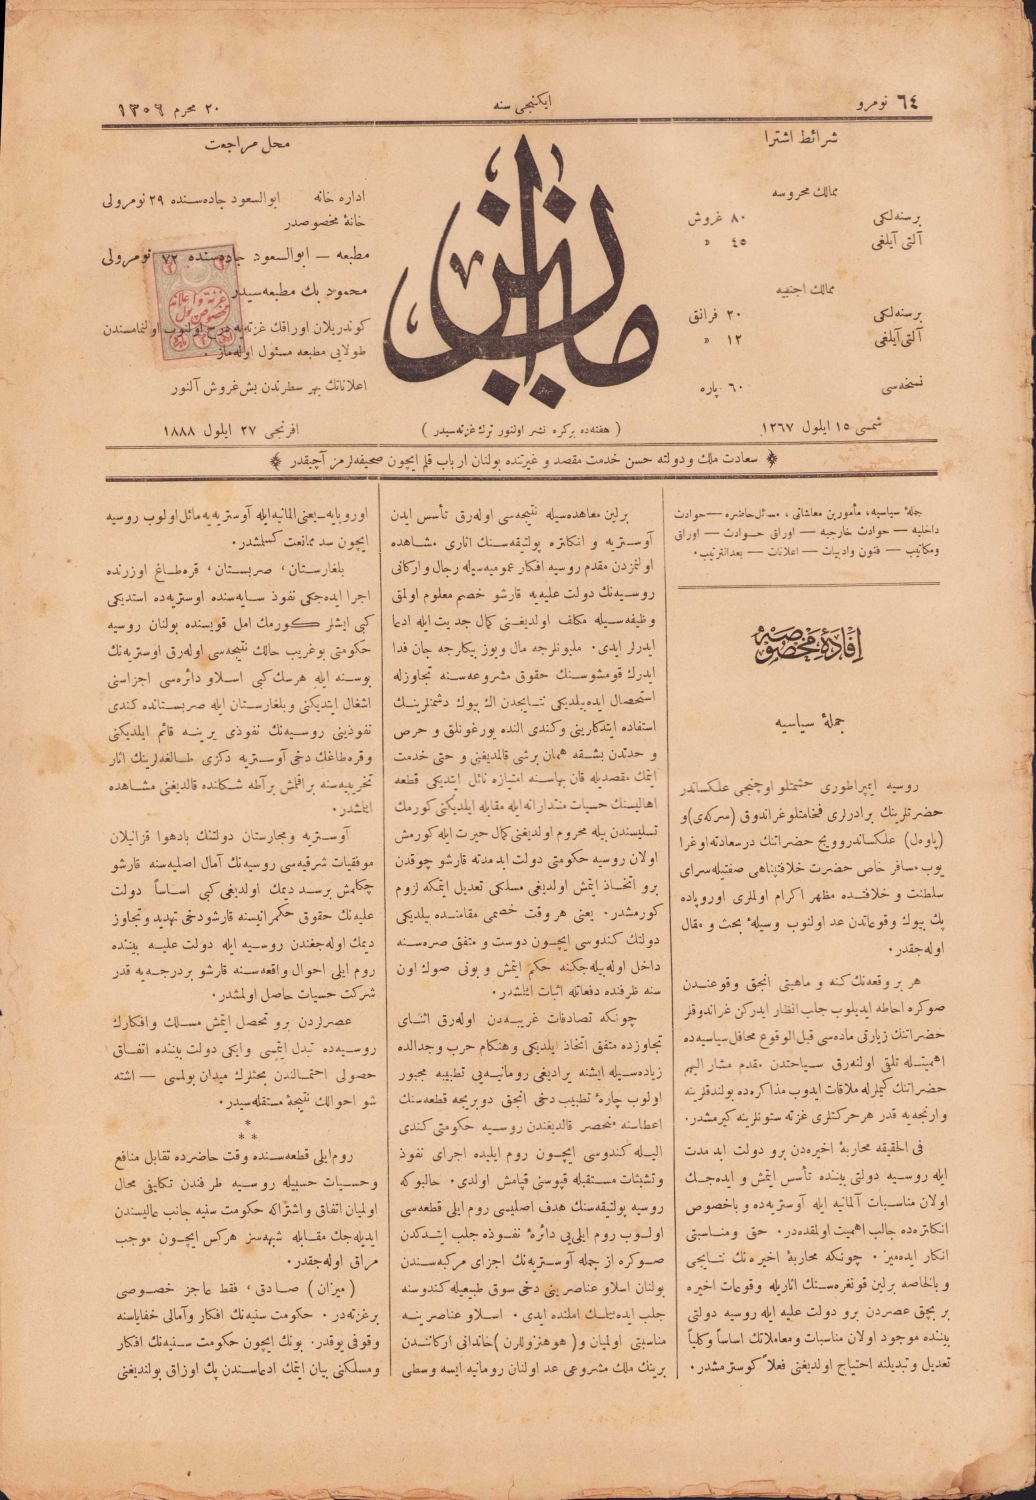 ٦٤ نومرو
ايكنجى سنه
٢٠ محرم ١٣٠٦
شرائط اشترا
ممالك محروسه
برسنه‌لكى ٨٠ غروش
آلتى آيلغى ٤٥ »
ممالك اجنبيه
برسنه‌لكى ٢٠ فرانق
آلتى آيلغى ١٢ »
نسخه‌سى ٦٠ پاره
شمسى ١٥ ايلول ١٢٦٧
ميزان
( هفته‌ده بركره نشر اولنور ترك غزته‌سيدر )
محل مراجعت
اداره خانه ابوالسعود جاده‌سنده ٢٩ نومرولى
خانهٔ مخصوصدر
مطبعه — ابوالسعود جاده‌سنده ٧٢ نومرولى
محمود بك مطبعه‌سيدر
كوندريلان اوراقك غزته‌يه درج اولنوب اولنمامسندن
طولايى مطبعه مسئول اوله‌ماز .
اعلاناتك بهر سطرندن بش غروش آلنور
افرنجى ٢٧ ايلول ١٨٨٨
غزته و اعلانه
مخصوص پول
سعادت ملك و دولته حسن خدمت مقصد و غيرتنده بولنان ارباب قلم ايچون صحيفه‌لرمز آچيقدر
جملهٔ سياسيه، مأمورين معاشاتى ، مسائل حاضره — حوادث
داخليه — حوادث خارجيه — اوراق حوادث — اوراق
ومكاتيب — فنون وادبيات — اعلانات — بعدالترتيب .
افادهٔ مخصوصه
جملهٔ سياسيه
روسيه ايمپراطورى حشمتلو اوچنجى علكساندر
حضرتلرينك برادرلرى فخامتلو غراندوق (سركه‌ى) و
(پاوه‌ل) علكساندروويچ حضراتنك درسعادته اوغرا
يوب مسافر خاص حضرت خلافتپناهى صفتيله سراى
سلطنت و خلافتده مظهر اكرام اولملرى اوروپاده
پك بيوك وقوعاتدن عد اولنوب وسيلهٔ بحث و مقال
اوله‌جقدر .
هر بر وقعه‌نك كنه و ماهيتى انجق وقوعندن
صوكره احاطه ايديلوب جلب انظار ايدركن غراندوقلر
حضراتنك زيارتى ماده‌سى قبل الوقوع محافل سياسيه‌ده
اهميتله تلقى اولنه‌رق سياحتدن مقدم مشار اليهم
حضراتنك كيملرله ملاقات ايدوب مذاكره‌ده بولندقلرينه
وارنجه‌يه قدر هر حركتلرى غزته ستونلرينه كيرمشدر .
فى الحقيقه محاربهٔ اخيره‌دن برو دولت ابد مدت
ايله روسيه دولتى بيننده تأسس ايتمش و ايده‌جك
اولان مناسبات آلمانيه ايله آوستريه‌ده و باخصوص
انكلتره‌ده جالب اهميت اولقده‌در . حق ومناسبتى
انكار ايده‌ميز . چونكه محاربهٔ اخيره‌نك نتايجى
و بالخاصه برلين قونغره‌سنك اثاريله وقوعات اخيره
بر بچق عصردن برو دولت عليه ايله روسيه دولتى
بيننده موجود اولان مناسبات ومعاملاتك اساساً وكلياً
تعديل وتبديلنه احتياج اولديغنى فعلاً كوسترمشدر .
برلين معاهده‌سيله نتيجه‌سى اوله‌رق تأسس ايدن
آوستريه و انكلتره پولتيقه‌سنك اثارى مشاهده
اولنمزدن مقدم روسيه افكار عموميه‌سيله رجال و اركانى
روسيه‌نك دولت عليه‌يه قارشو خصم معلوم اولمق
وظيفه‌سيله مكلف اولديغنى كمال جديت ايله ادعا
ايدرلر ايدى . مليونلرجه مال و يوز بيكلرجه جان فدا
ايدرك قومشوسنك حقوق مشروعه‌سنه تجاوزله
استحصال ايده‌بيلديكى نتايجدن اك بيوك دشمنلرينك
استفاده ايتدكلرينى وكندى النده يورغونلق و حرص
و حدتدن بشقه همان برشى قالمديغنى و حتى خدمت
ايتمك مقصديله قان بهاسنه امتيازه نائل ايتديكى قطعه
اهاليسنك حسيات منتدارانه ايله مقابله ايلديكنى كورمك
تسليسندن بيله محروم اولديغنى كمال حيرت ايله كورمش
اولان روسيه حكومتى دولت ابدمدته قارشو چوقدن
برو اتخاذ ايتمش اولديغى مسلكى تعديل ايتمكه لزوم
كورمشدر . يعنى هر وقت خصمى مقامنده بيلديكى
دولتك كندوسى ايچون دوست و متفق صره‌سنه
داخل اوله‌بيله‌جكنه حكم ايتمش و بونى صوك اون
سنه ظرفنده دفعاتله اثبات ايتمشدر .
چونكه تصادفات غريبه‌دن اوله‌رق اثناى
تجاوزده متفق اتخاذ ايلديكى وهنكام حرب وجدالده
زياده‌سيله ايشنه يراديغى رومانيه‌يى تطييبه مجبور
اولوب چارهٔ تطييب دخى انجق دوبريجه قطعه‌سنك
اعطاسنه منحصر قالديغندن روسيه حكومتى كندى
اليله كندوسى ايچون روم ايليده اجراى نفوذ
وتشبثات مستقبله قپوسنى قپامش اولدى . حالبوكه
روسيه پولتيقه‌سنك هدف اصليسى روم ايلى قطعه‌سى
اولوب روم ايلى‌يى دائرهٔ نفوذه جلب ايتدكدن
صوكره از جمله آوستريه‌نك اجزاى مركبه‌سندن
بولنان اسلاو عناصرينى دخى سوق طبيعيله كندوسنه
جلب ايده‌بيلمك املنده ايدى . اسلاو عناصرينه
مناسبتى اوليان و ( هوهنزوللرن ) خاندانى اركانندن
برينك ملك مشروعى عد اولنان رومانيه ايسه وسطى
اوروپايه ـ يعنى المانيه ايله آوستريه‌يه مائل اولوب روسيه
ايچون سد ممانعت كسلمشدر .
بلغارستان ، صربستان ، قره‌طاغ اوزرنده
اجرا ايده‌جكى نفوذ سايه‌سنده اوستريه‌ده استديكى
كبى ايشلر كورمك امل قويسنده بولنان روسيه
حكومتى بو غريب حالك نتيجه‌سى اوله‌رق اوستريه‌نك
بوسنه ايله هرسك كبى اسلاو دائره‌سى اجزاسنى
اشغال ايتديكنى وبلغارستان ايله صربستانده كندى
نفوذينى روسيه‌نك نفوذى يرينه قائم ايلديكنى
وقره‌طاغك دخى آوستريه دكزى طالغه‌لرينك اثار
تخريبيه‌سنه براقلمش برآطه شكلنده قالديغنى مشاهده
ايتمشدر .
آوستريه ومجارستان دولتنك بادهوا قزانيلان
موفقيات شرقيه‌سى روسيه‌نك آمال اصليه‌سنه قارشو
چكلمش برسد ديمك اولديغى كبى اساساً دولت
عليه‌نك حقوق حكمرانيسنه قارشو دخى تهديد وتجاوز
ديمك اوله‌جغندن روسيه ايله دولت عليه بيننده
روم ايلى احوال واقعه‌سنه قارشو بر درجه‌يه قدر
شركت حسيات حاصل اولمشدر .
عصرلردن برو تحصل ايتمش مسلك وافكارك
روسيه‌ده تبدل ايتمسى وايكى دولت بيننده اتفاق
حصولى احتمالندن بحثلرك ميدان بولمسى — اشته
شو احوالك نتيجهٔ مستقله‌سيدر .
*
* *
روم‌ايلى قطعه‌سنده وقت حاضرده تقابل منافع
وحسيات حسبيله روسيه طرفندن تكليفى محال
اوليان اتفاق واشتراكه حكومت سنيه جانب عاليسندن
ايديله‌جك مقابله شبهه‌سز هركس ايچون موجب
مراق اوله‌جقدر .
( ميزان ) صادق ، فقط عاجز خصوصى
برغزته‌در . حكومت سنيه‌نك افكار وآمالى خفاياسنه
وقوفى يوقدر . بونك ايچون حكومت سنيه‌نك افكار
ومسلكنى بيان ايتمك ادعاسندن پك اوزاق بولنديغنى